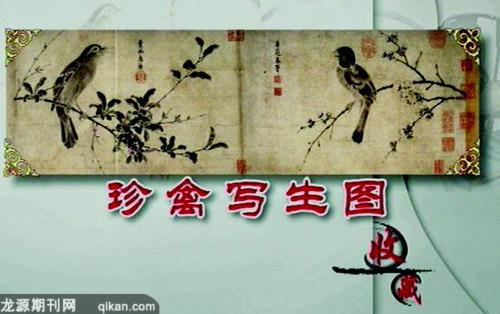 珍禽写生图
收
藏
龙源期刊网 qikan.com